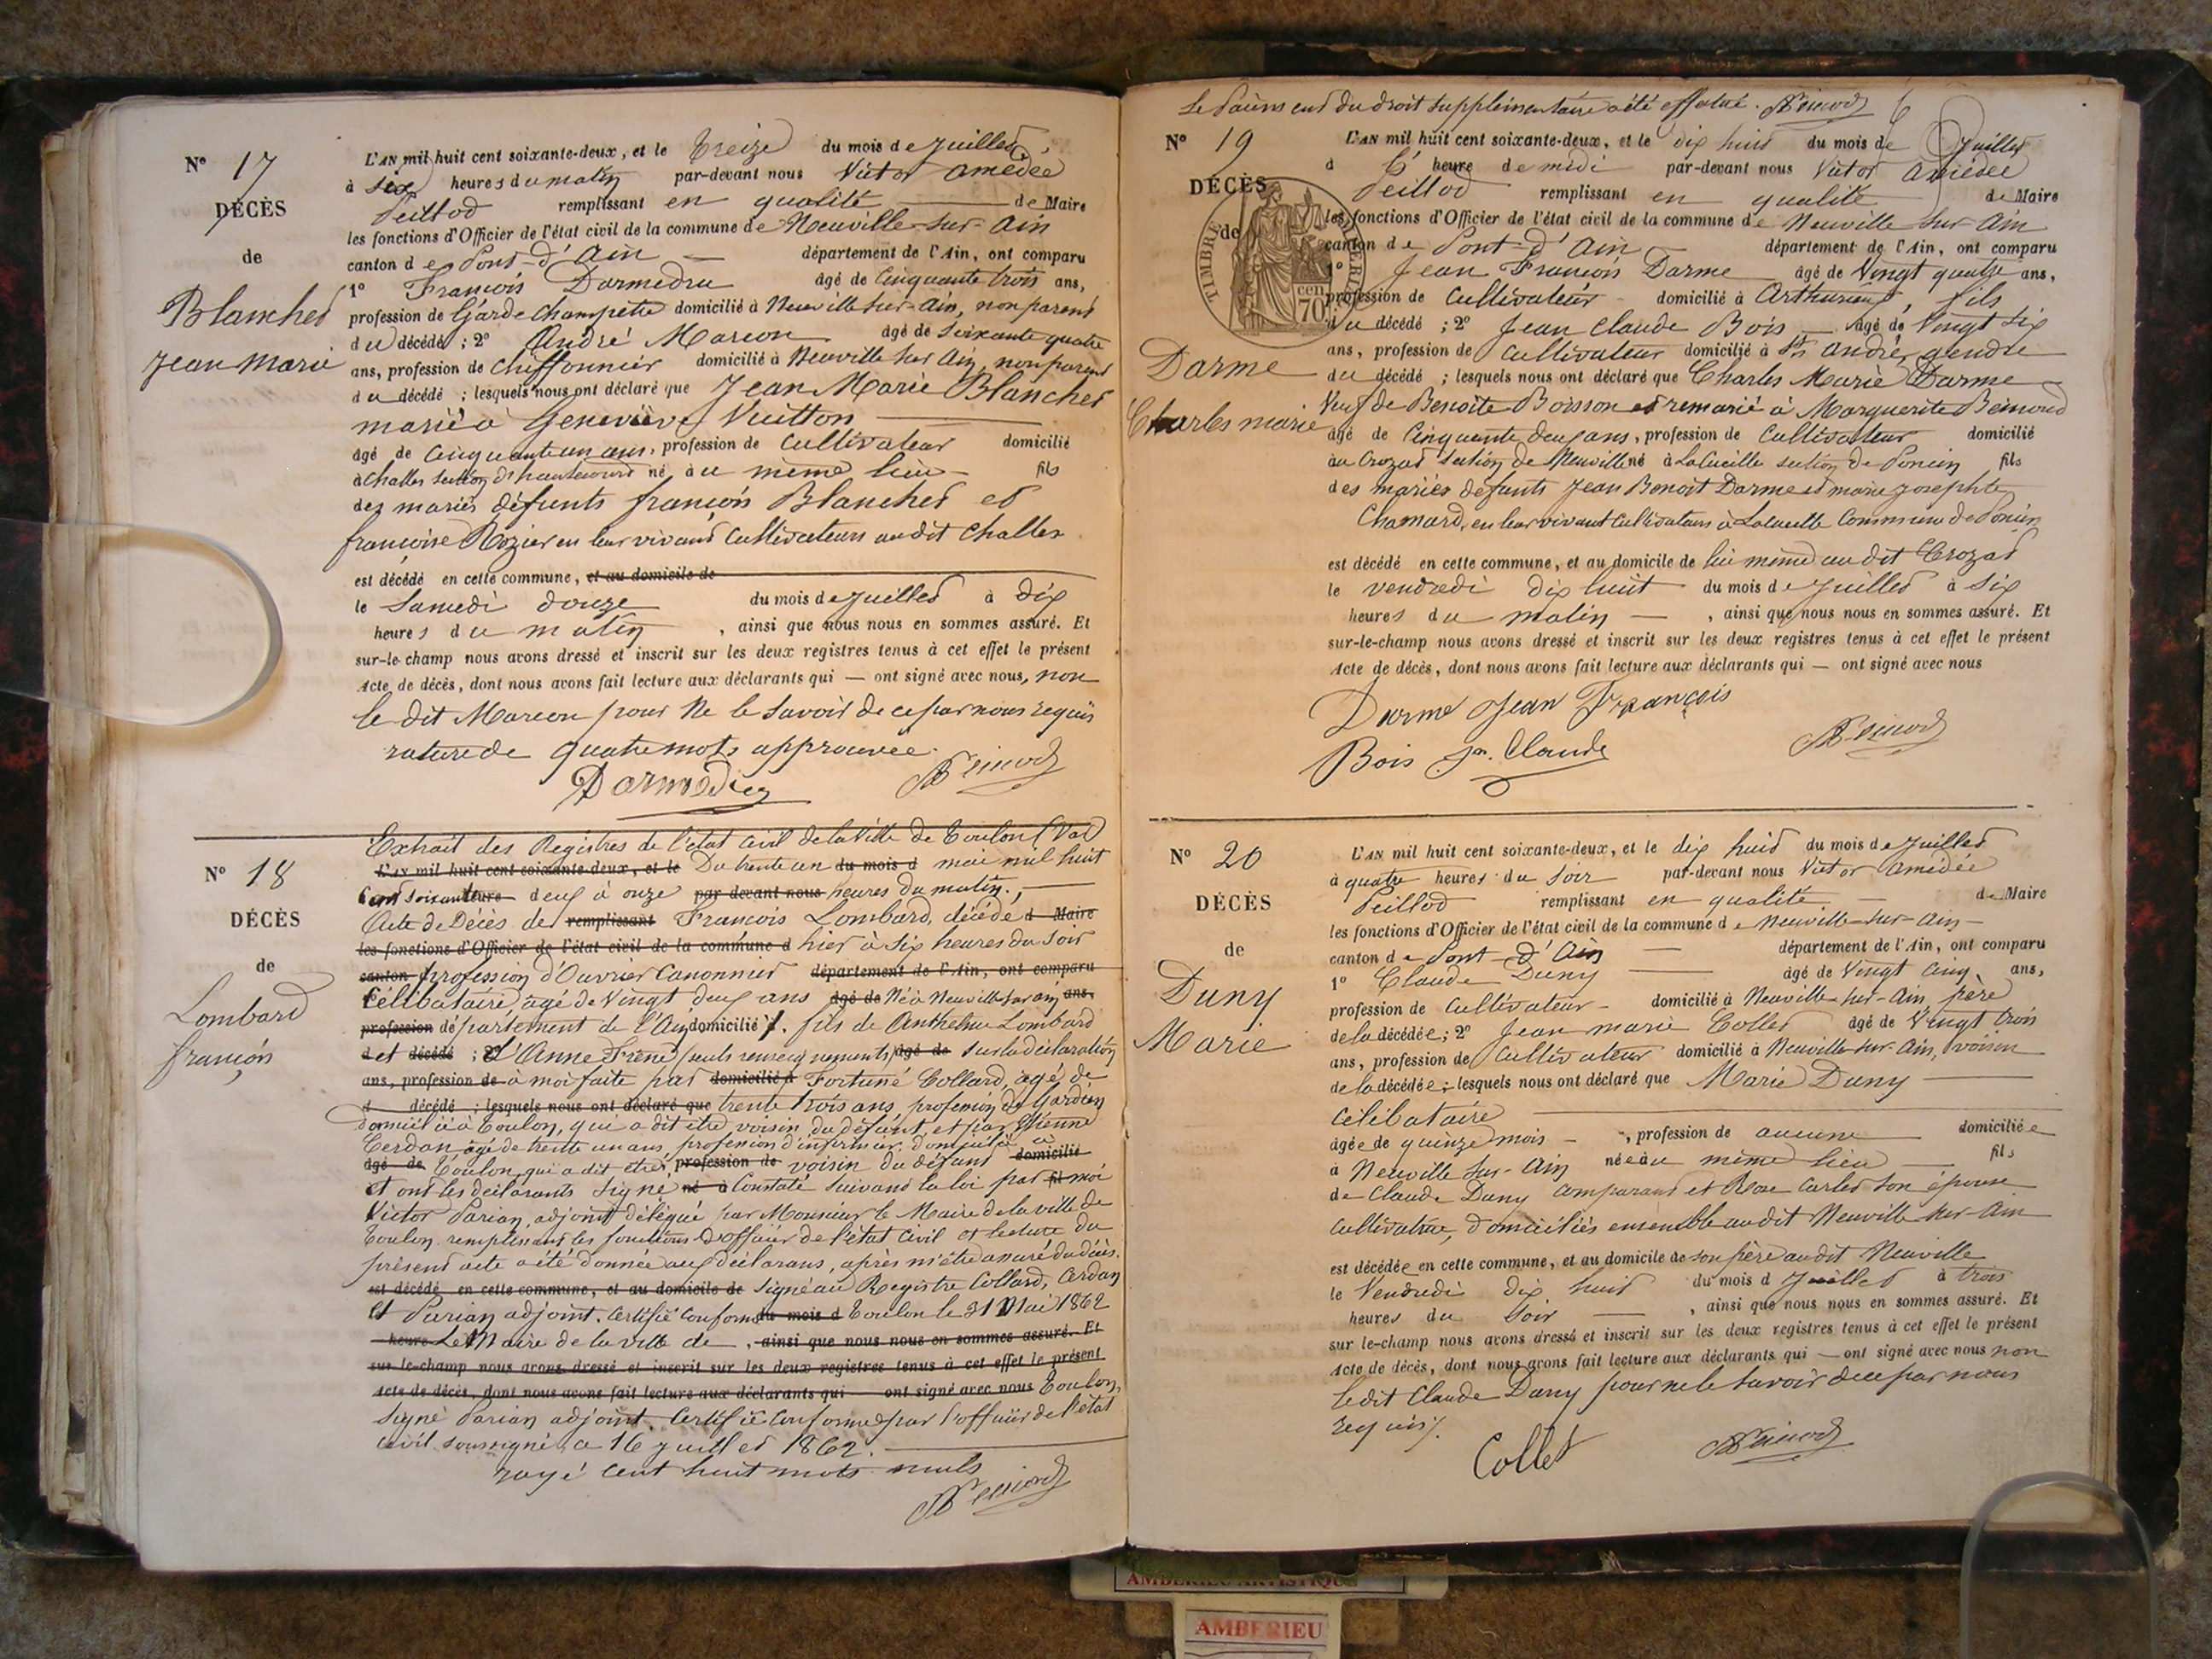 N° 17
DÉCÈS
de
Blanchet
Jean Marie
L'AN mil huit cent soixante-deux, et le treize du mois de juillet,
à six heures du matin par-devant nous Victor Amédée
Peillod remplissant en qualité de Maire
les fonctions d'Officier de l'état civil de la commune de Neuville-sur-Ain
canton de Pont-d'Ain département de l'Ain, ont comparu
1° François Darmedru âgé de cinquante trois ans,
profession de Garde Champette domicilié à Neuville sur-Ain, non parent
du décédé ; 2° André Marcon âgé de soixante quatre
ans, profession de chiffonnier domicilié à Neuville sur Ain, non parent
du décédé ; lesquels nous ont déclaré que Jean Marie Blanchet
marié à Geneviève Vuitton
âgé de cinquante un ans, profession de cultivateur domicilié
à Challes section d' né, au meme lieu fils
des mariés défunts françois Blanchet et
françoise Rozier en leur vivant cultivateurs audit Challes
est décédé en cette commune, et au domicile de
le samedi douze du mois de juillet à dix
heures du matin , ainsi que nous nous en sommes assuré. Et
sur-le-champ nous avons dressé et inscrit sur les deux registres tenus à cet effet le présent
Acte de décès, dont nous avons fait lecture aux déclarants qui — ont signé avec nous, non
le dit Marcon pour ne le savoir de ce par nous requis
rature de quatre mots approuvée.
Darmedru
N° 18
DÉCÈS
de
Lombard
françois
Extrait des Registres de l'état civil de la Ville de Toulon (Var)
L'AN mil huit cent soixante-deux, et le Du trente un du mois d mai mil huit
cent soixante deux à onze par-devant nous heures du matin.,
Acte de Décès de remplissant François Lombard, décédé d Maire
les fonctions d'Officier de l'état civil de la commune d hier à six heures du soir
canton profession d'Ouvrier Canonnier département de l'Ain, ont comparu
Célibataire, agé de Vingt deux ans âgé de Né à Neuville sur ain ans,
profession département de l'Ain domicilié à. fils de Anthelme Lombard
d et décédé ; 2° d'Anne Frène (seuls renseignements) âgé de sur la déclaration
ans, profession de à moi faite par domicilié à Fortuné Collard, agé de
d décédé ; lesquels nous ont déclaré que trente trois ans profession de Gardien
domicilié à Toulon, qui a dit etre voisin du défunt, et par Etienne
Cerdan agé de trente un ans, profession d'infirmier, domicilié à
âgé de Toulon, qui a dit etre, profession de voisin du défunt domicilié
et ont les déclarants signé né à Constaté suivant la loi par fil moi
Victor Parian, adjoint délégué par Monsieur le Maire de la ville de
Toulon remplissant les fonctions d'officier de l'état civil et lecture du
présent acte a été donnée aux déclarans, après m'être assuré du décès.
est décédé en cette commune, et au domicile de Signé au Registre Collard, Cerdan
et Parian adjoint. Certifié conforme du mois d Toulon le 31 Mai 1862
heure Le Maire de la ville de , ainsi que nous nous en sommes assuré. Et
sur-le-champ nous avons dressé et inscrit sur les deux registres tenus à cet effet le présent
Acte de décès, dont nous avons fait lecture aux déclarants qui ont signé avec nous Toulon,
Signé Parian, adjoint. Certifié conforme par l'officier de l'état
civil soussigné, ce 16 juillet 1862.
rayé cent huit mots nuls
Le Paiement du droit supplémentaire a été effectué.
N° 19
DÉCÈS
de
TIMBRE
cen
70
Darme
Charles marie
L'AN mil huit cent soixante-deux, et le dix huit du mois de Juillet
à l' heure de midi par-devant nous Victor Amédée
Peillod remplissant en qualité de Maire
les fonctions d'Officier de l'état civil de la commune de Neuville sur Ain
canton de Pont-d'Ain département de l'Ain, ont comparu
1° Jean François Darme âgé de Vingt quatre ans,
profession de Cultivateur domicilié à , fils
du décédé ; 2° Jean Claude Bois âgé de Vingt six
ans, profession de Cultivateur domicilié à St André, gendre
du décédé ; lesquels nous ont déclaré que Charles Marie Darme
Veuf de Benoite Boisson et remarié à Marguerite
âgé de Cinquante deux ans, profession de Cultivateur domicilié
au Crozat section de Neuville né à LaCueille section de Poncin fils
des mariés défunts Jean Benoit Darme et marie josephte
Chamard, en leur vivant cultivateurs à Lacueille Commune de Poncin
est décédé en cette commune, et au domicile de lui même au dit Crozat
le vendredi dix huit du mois de juillet à six
heures du matin , ainsi que nous nous en sommes assuré. Et
sur-le-champ nous avons dressé et inscrit sur les deux registres tenus à cet effet le présent
Acte de décès, dont nous avons fait lecture aux déclarants qui — ont signé avec nous
Darme Jean François
Bois Jn Claude
N° 20
DÉCÈS
de
Duny
Marie
L'AN mil huit cent soixante-deux, et le dix huit du mois de Juillet
à quatre heures du soir par-devant nous Victor Amédée
Peillod remplissant en qualité de Maire
les fonctions d'Officier de l'état civil de la commune de Neuville-sur-Ain
canton de Pont-d'Ain département de l'Ain, ont comparu
1° Claude Duny âgé de Vingt cinq ans,
profession de Cultivateur domicilié à Neuville-sur-Ain, père
de la décédée ; 2° Jean marie Collet âgé de Vingt trois
ans, profession de Cultivateur domicilié à Neuville-sur-Ain, voisin
de la décédée ; lesquels nous ont déclaré que Marie Duny
célibataire
âgée de quinze mois , profession de aucune domiciliée
à Neuville sur-Ain née au même lieu fils
de Claude Duny comparant et Rose Carlet son épouse
cultivatrice, domiciliés ensemble audit Neuville-sur-Ain
est décédée en cette commune, et au domicile de son père audit Neuville
le Vendredi dix huit du mois d Juillet à trois
heures du soir , ainsi que nous nous en sommes assuré. Et
sur-le-champ nous avons dressé et inscrit sur les deux registres tenus à cet effet le présent
Acte de décès, dont nous avons fait lecture aux déclarants qui — ont signé avec nous non
ledit Claude Duny pour ne le savoir de ce par nous
requis.
Collet
AMBERIEU ARTISTIQUE
AMBERIEU